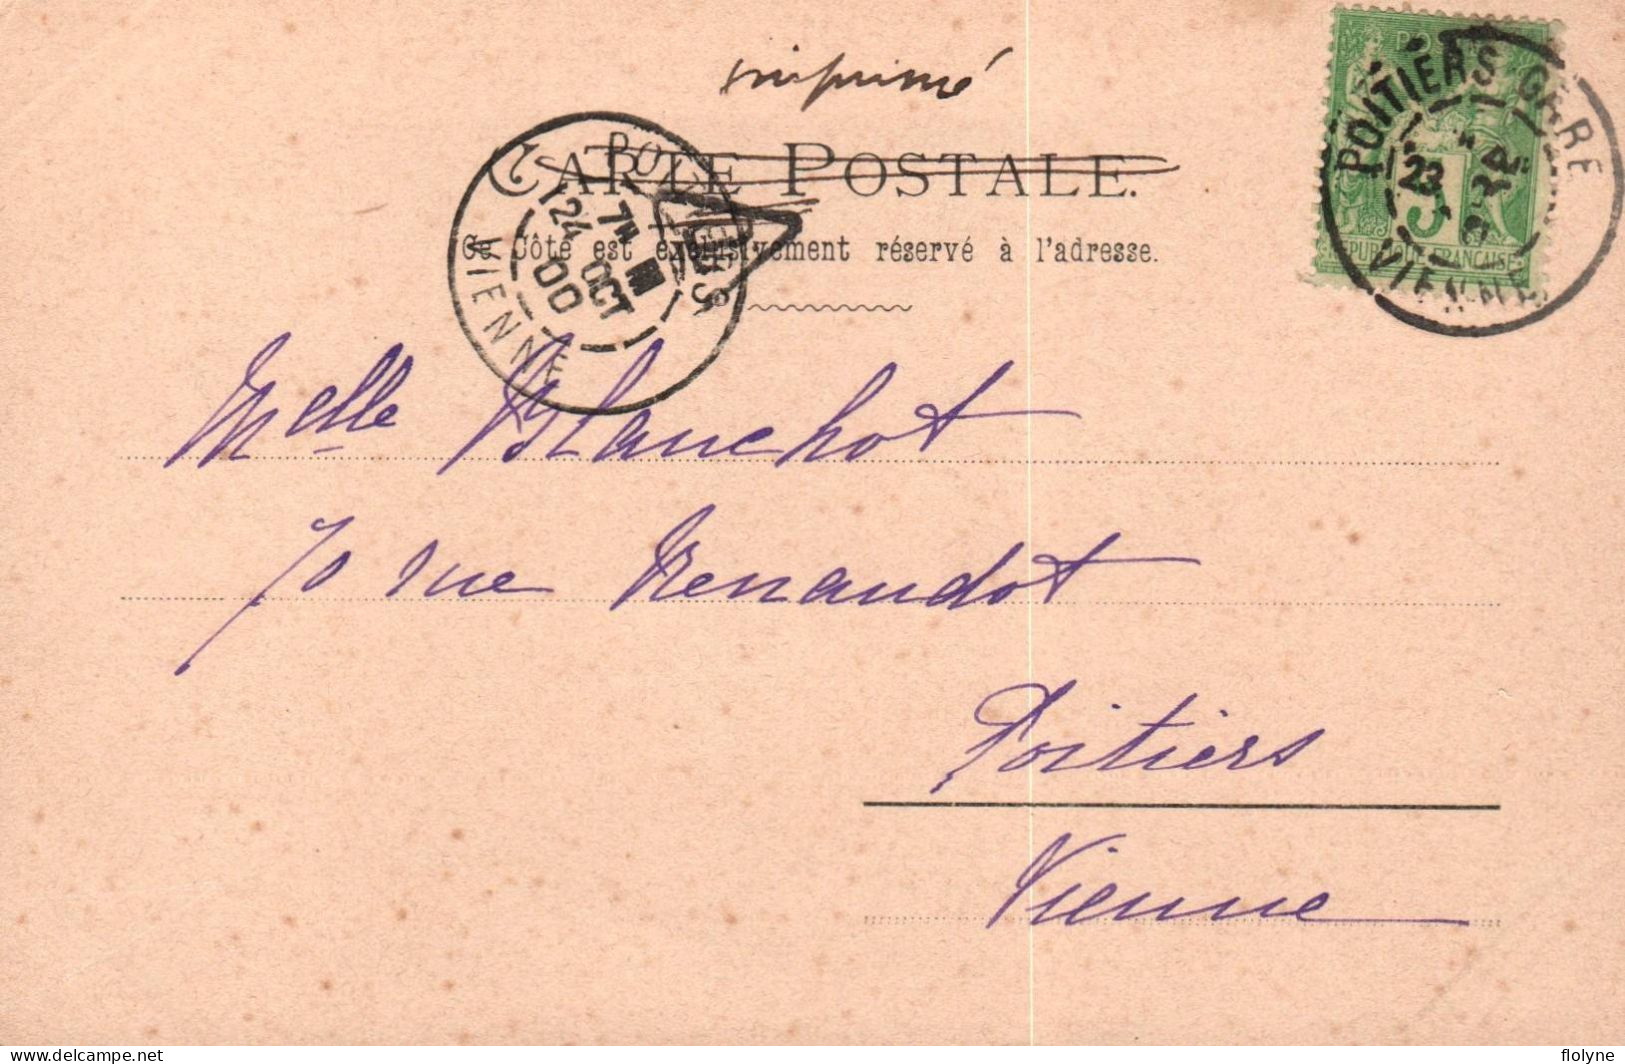 imprimé
CARTE POSTALE.
Ce Côté est exclusivement réservé à l'adresse.
POITIERS
7M
24 OCT 00
VIENNE
POITIERS GARE
23
VIENNE
5
REPUBLIQUE FRANÇAISE
Melle Blanchot
70 rue Renaudot
Poitiers
Vienne
flolyne